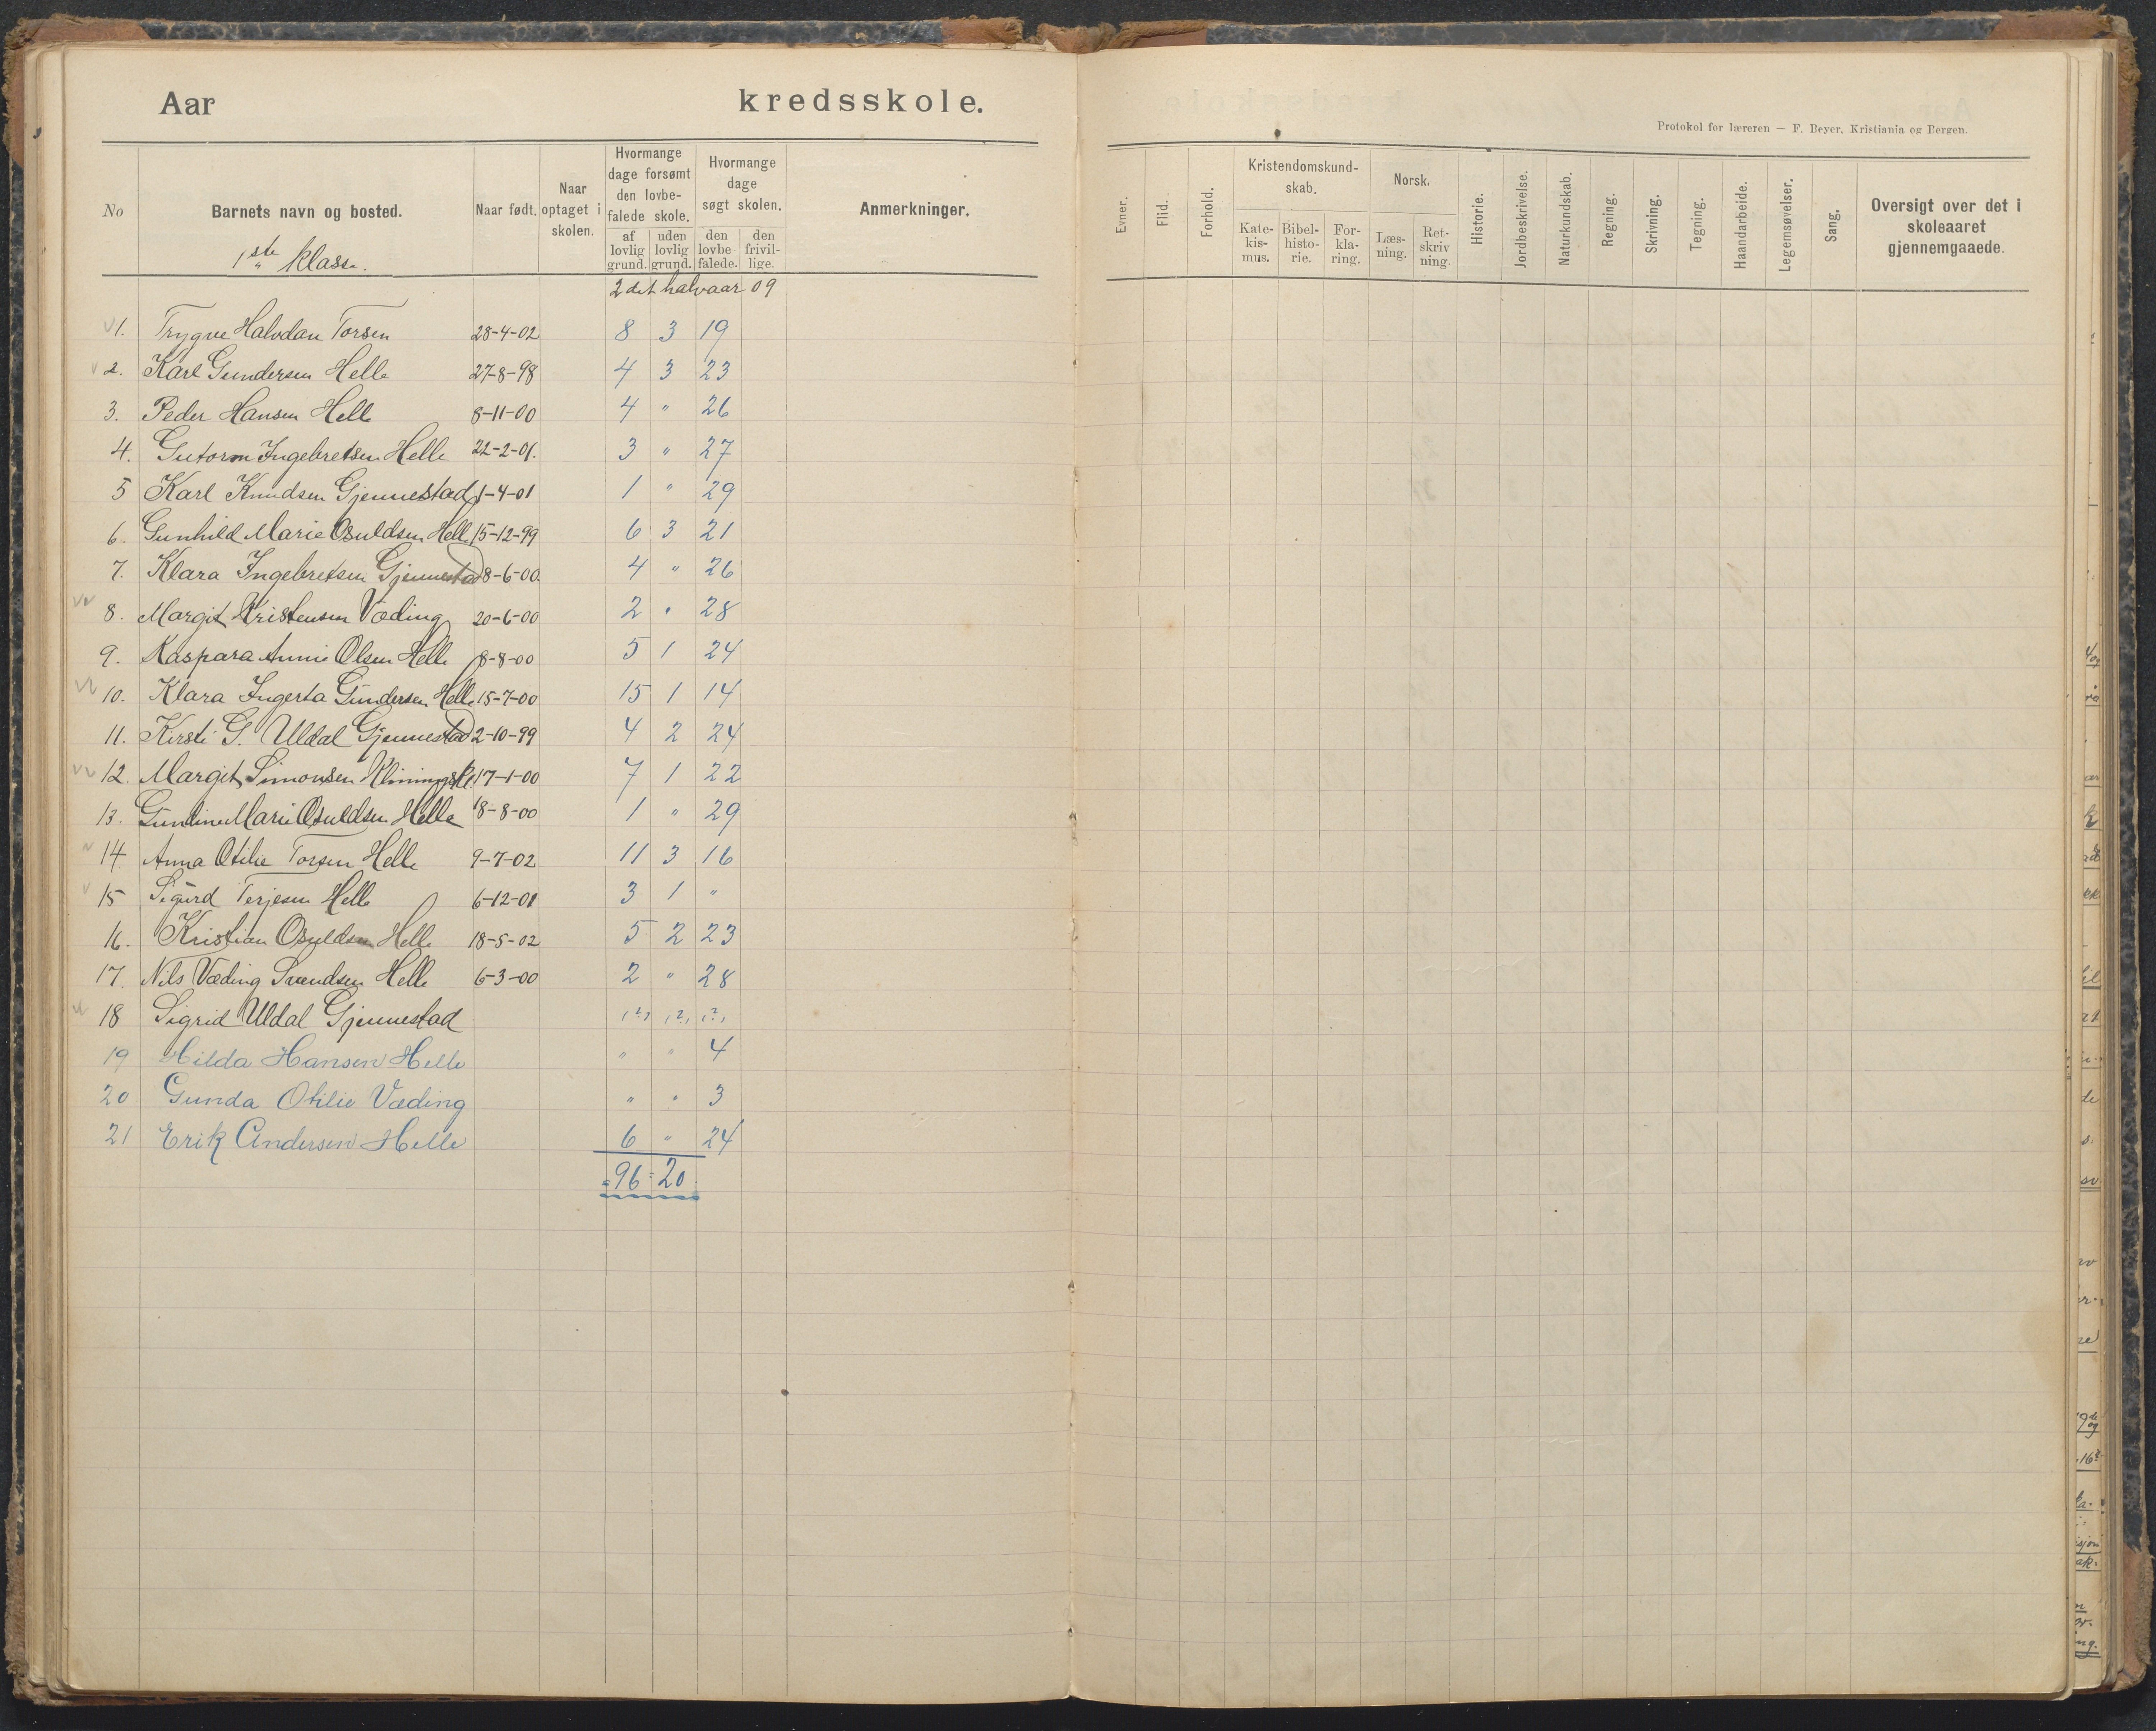 Aar kredsskole.
Protokol for læreren — F. Beyer, Kristiania og Bergen.
No Barnets navn og bosted. Naar født. Naar optaget i skolen. Hvormange dage forsømt den lovbefalede skole. af lovlig grund. uden lovlig grund. Hvormange dage søgt skolen. den lovbefalede. den frivillige. Anmerkninger.
Evner. Flid. Forhold. Kristendomskundskab. Katekismus. Bibelhistorie. Forklaring. Norsk. Læsning. Retskrivning. Historie. Jordbeskrivelse. Naturkundskab. Regning. Skrivning. Tegning. Haandarbeide. Legemsøvelser. Sang. Oversigt over det i skoleaaret gjennemgaaede.
1ste klasse.
2det halvaar 09
1. Trygve Halvdan Torsen 28-4-02 8 3 19
2. Karl Gundersen Helle 27-8-98 4 3 23
3. Peder Hansen Helle 8-11-00 4 " 26
4. Gutorm Ingebretsen Helle 22-2-01. 3 " 27
5 Karl Knudsen Gjennestad 1-4-01 1 " 29
6. Gunhild Marie Osuldsen Helle 15-12-99 6 3 21
7. Klara Ingebretsen Gjennestad 8-6-00. 4 " 26
8. Margit Kristensen Væding 20-6-00 2 " 28
9. Kaspara Annie Olsen Helle 8-8-00 5 1 24
10. Klara Ingerta Gundersen Helle 15-7-00 15 1 14
11. Kirsti G. Uldal Gjennestad 2-10-99 4 2 24
12. Margit Simonsen 17-1-00 7 1 22
13. Gunline Marie Osuldsen Helle 18-8-00 1 " 29
14. Anna Otilie Torsen Helle 9-7-02 11 3 16
15 Sigurd Terjesen Helle 6-12-01 3 1 "
16. Kristian Osuldsen Helle 18-5-02 5 2 23
17. Nils Væding Svendsen Helle 6-3-00 2 " 28
18 Sigrid Uldal Gjennestad (?) (?) (?)
19 Hilda Hansen Helle " " 4
20 Gunda Otilie Væding " " 3
21 Erik Andersen Helle 6 " 24
=96=20